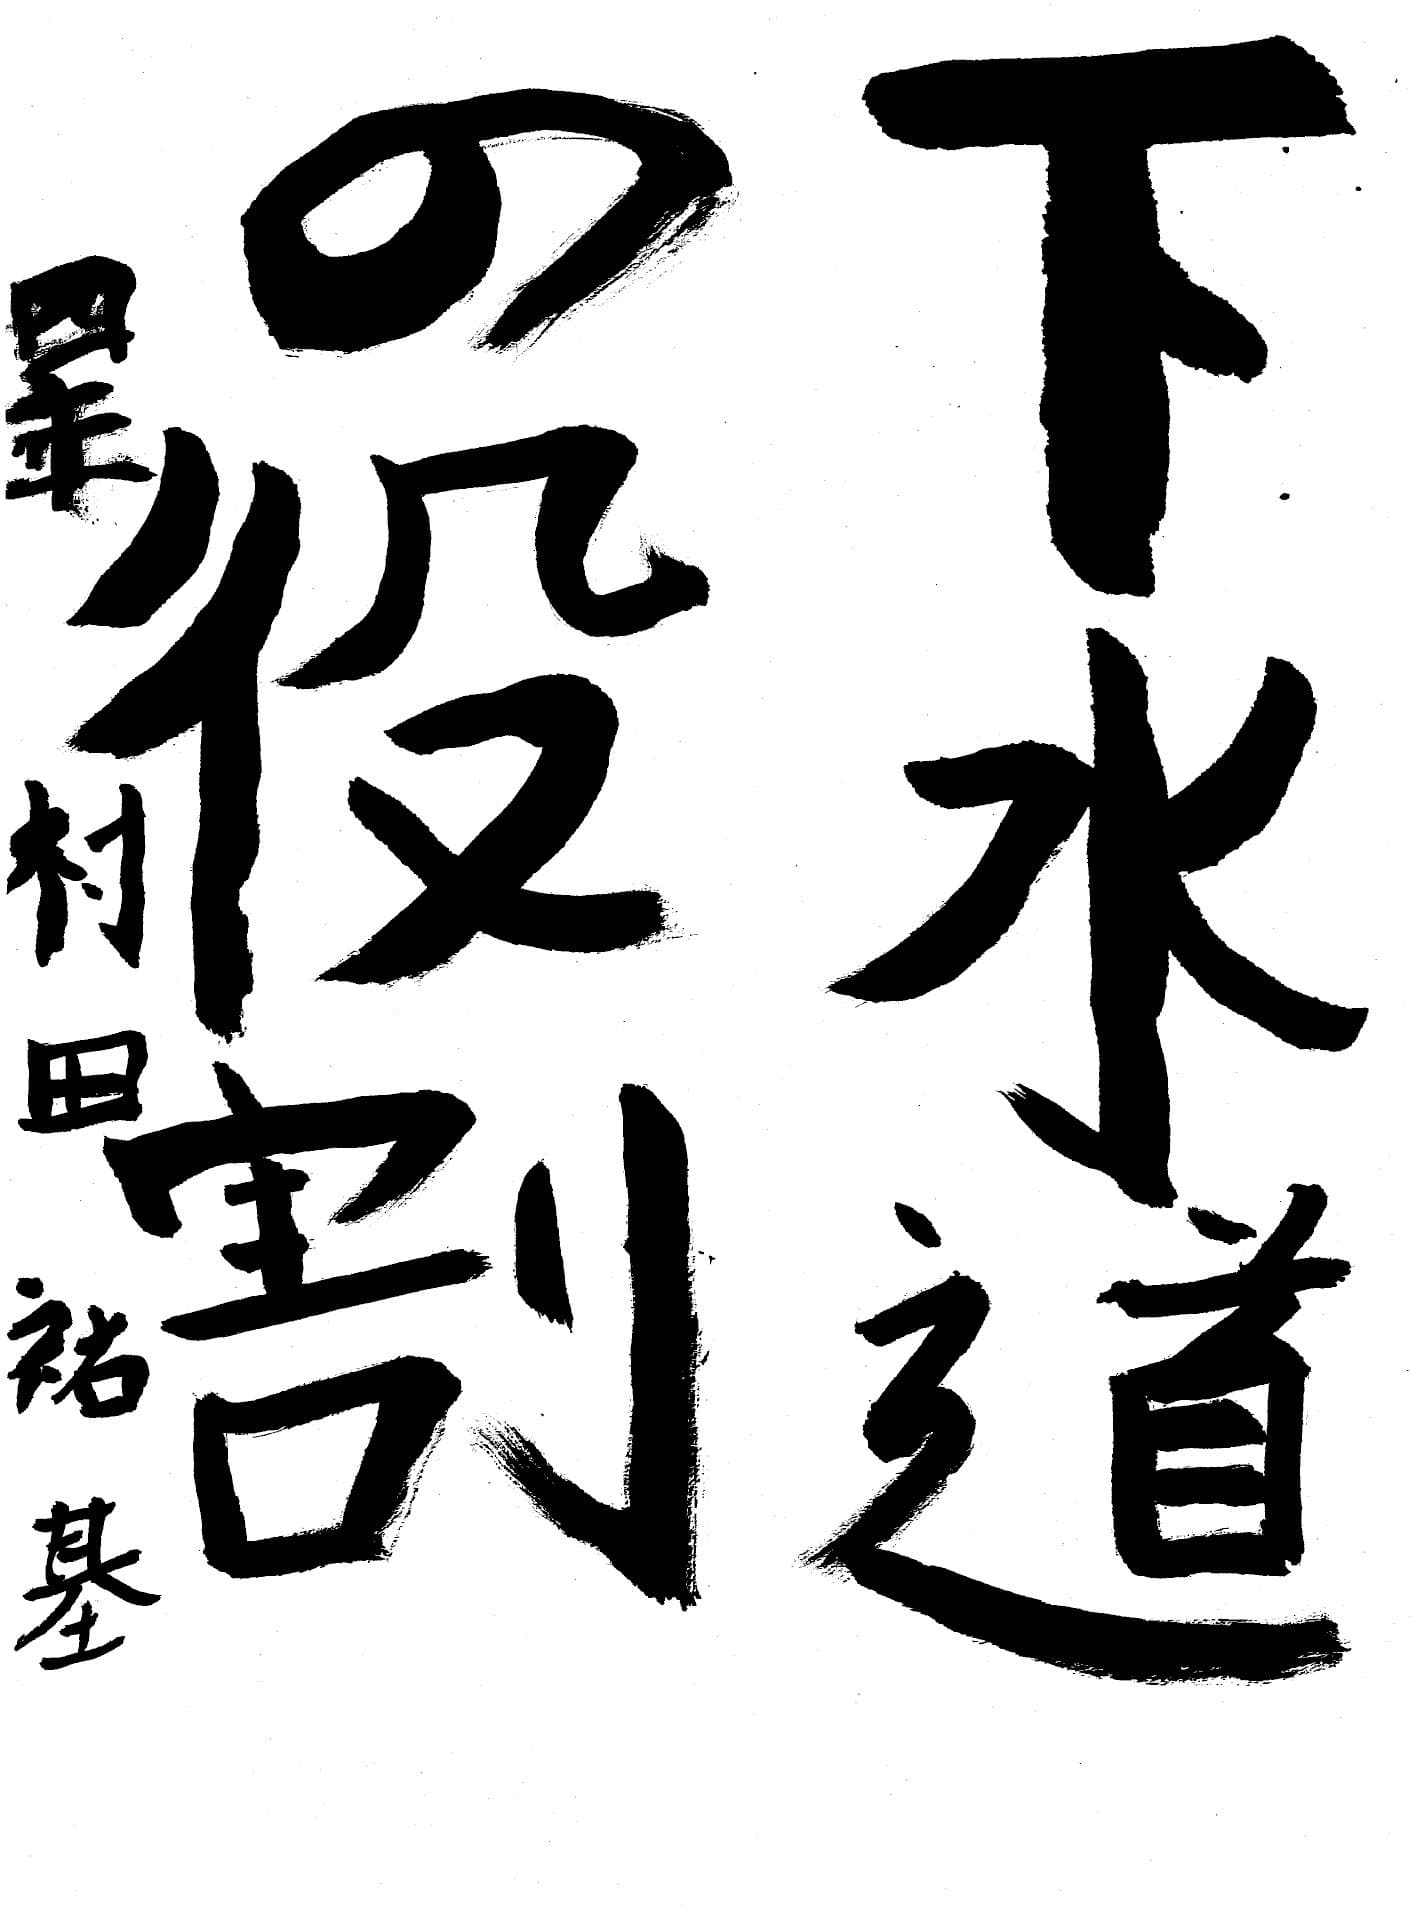 下水道
の役割
四年 村田祐基